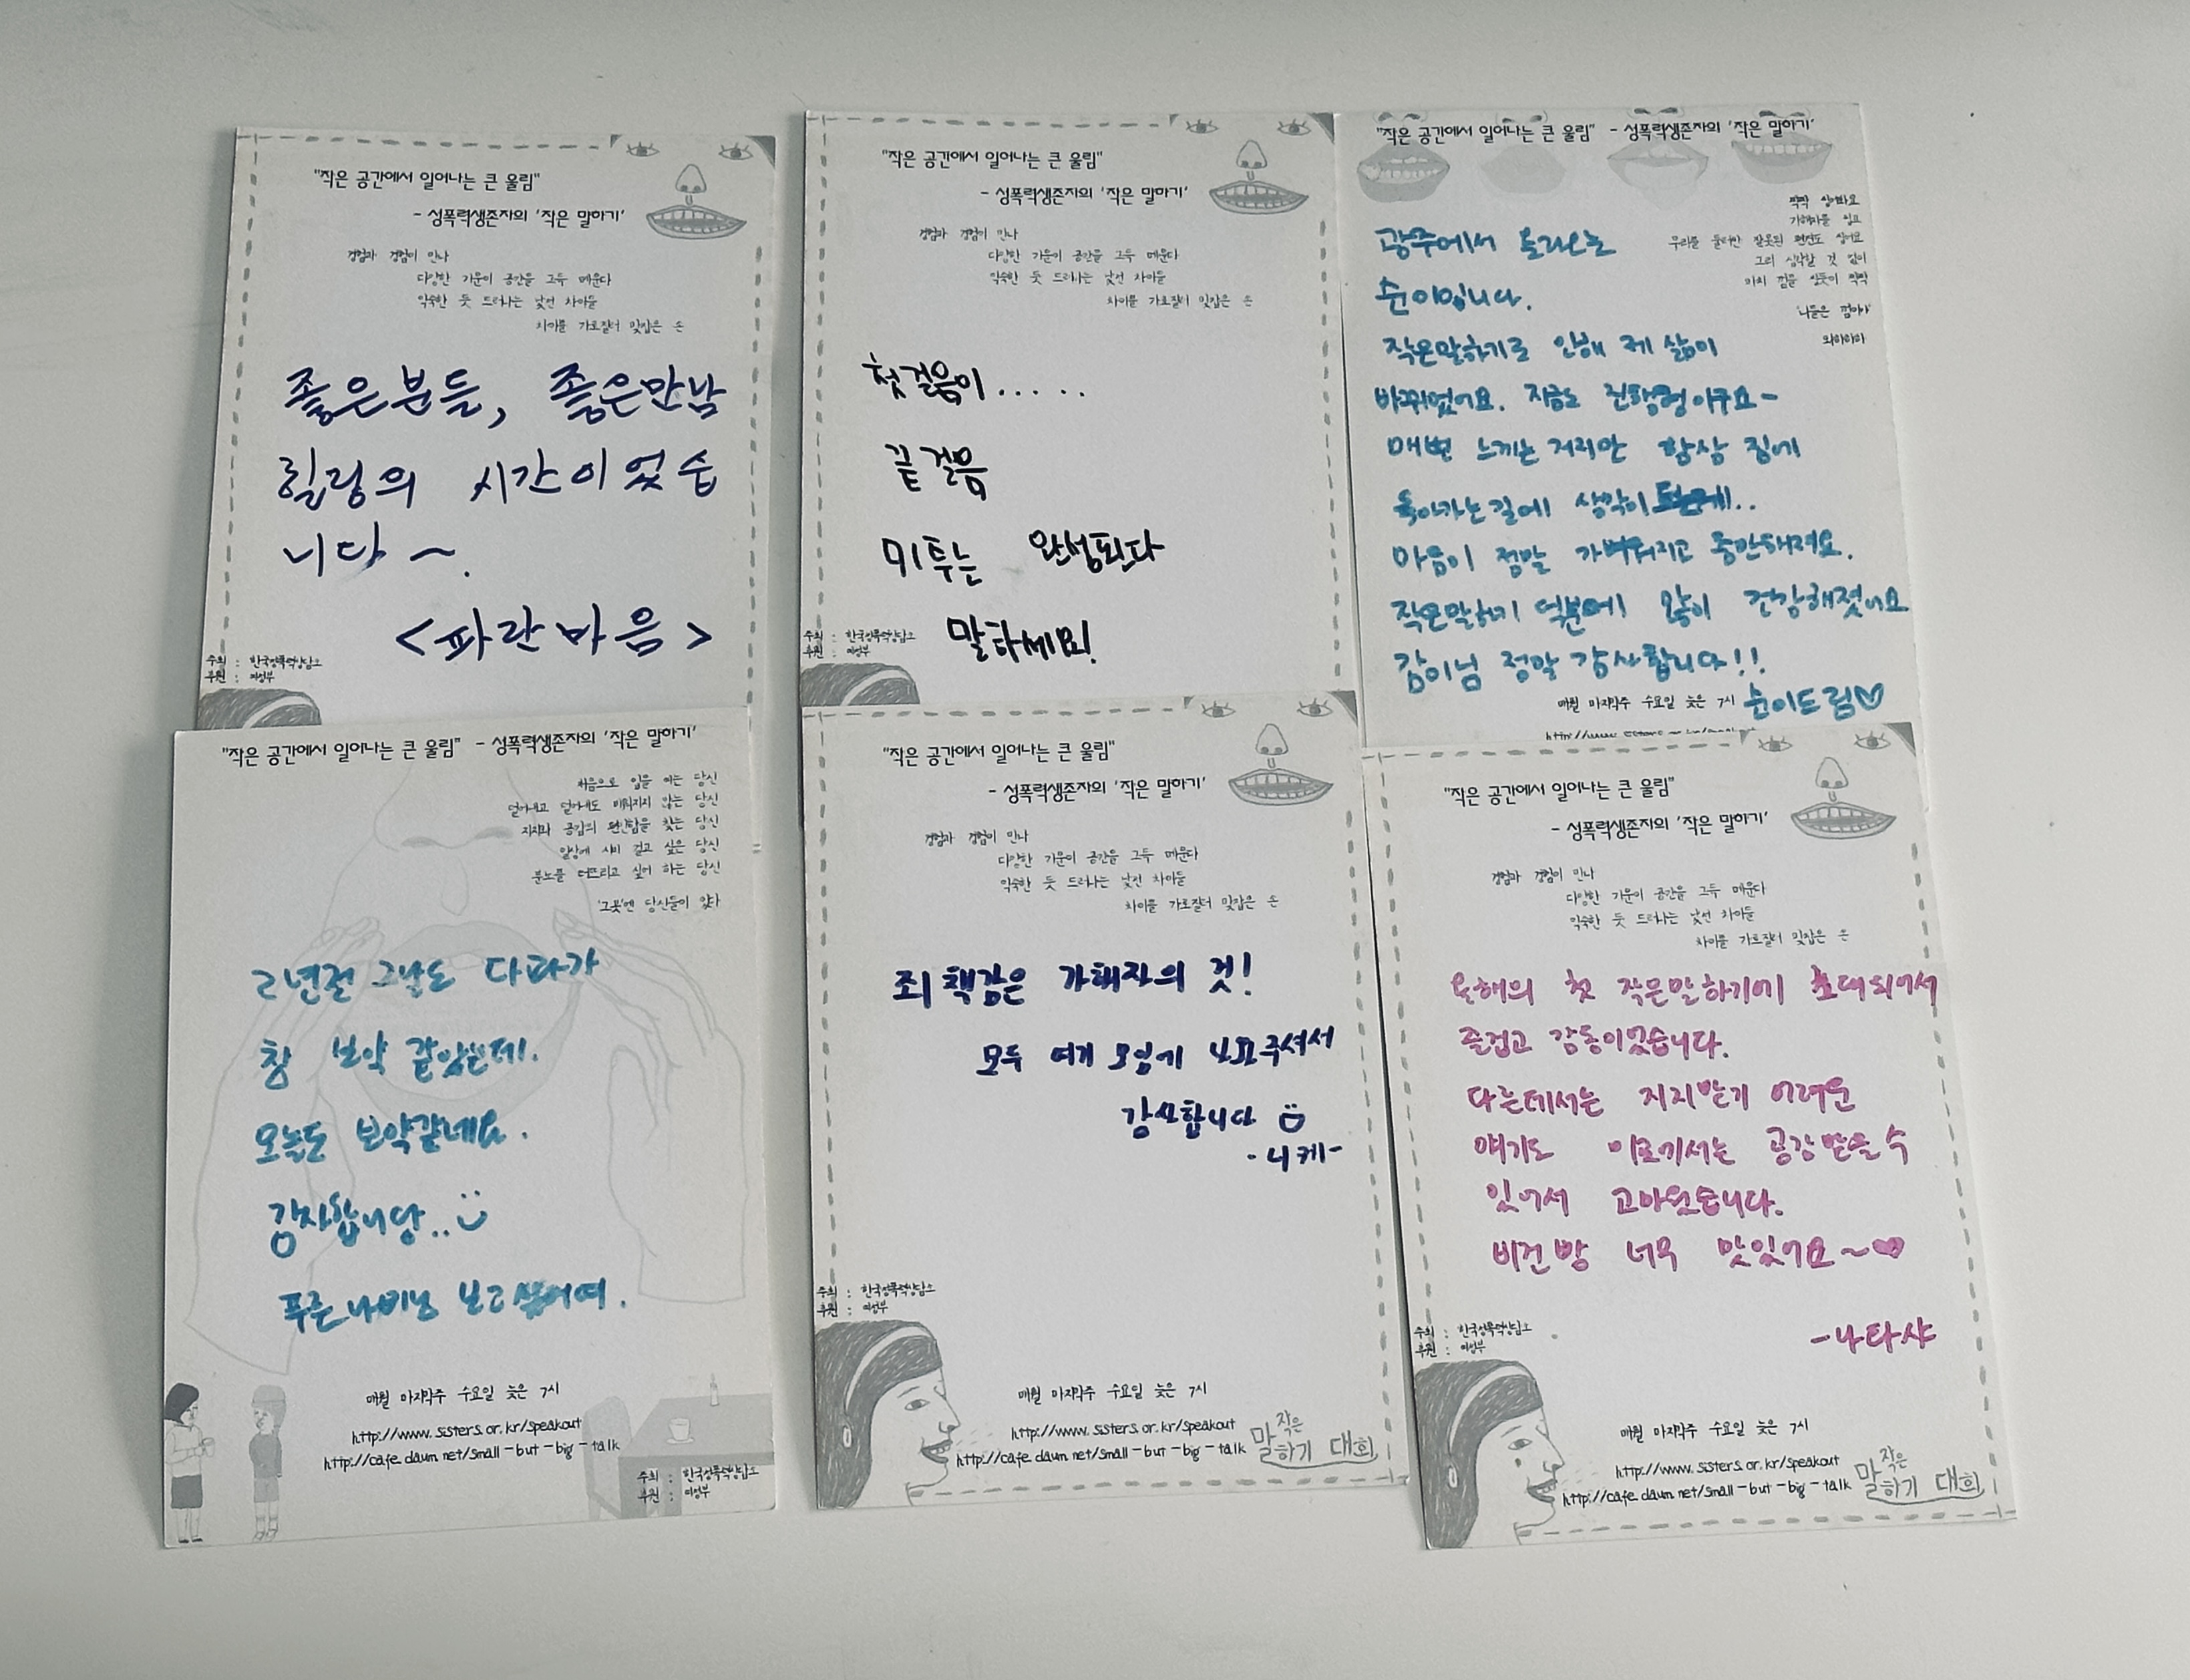 "작은 공간에서 일어나는 큰 울림"
- 성폭력생존자의 '작은 말하기'
경험과 경험이 만나
다양한 기운이 공간을 그득 메운다
익숙한 듯 드러나는 낯선 차이들
차이를 가로질러 맞잡은 손
좋은분들, 좋은만남
힐링의 시간이었습
니다~.
<파란마음>
주최 : 한국성폭력상담소
후원 : 여성부
"작은 공간에서 일어나는 큰 울림"
- 성폭력생존자의 '작은 말하기'
경험과 경험이 만나
다양한 기운이 공간을 그득 메운다
익숙한 듯 드러나는 낯선 차이들
차이를 가로질러 맞잡은 손
첫걸음이.....
끝걸음
미투는 완성된다
말하세요!
주최 : 한국성폭력상담소
후원 : 여성부
"작은 공간에서 일어나는 큰 울림" - 성폭력생존자의 '작은 말하기'
짝짝 씹어봐요
가해자를 씹고
우리를 둘러싼 잘못된 편견도 씹어요
그리 심각할 것 없이
마치 껌을 씹듯이 짝짝
'니들은 껌이야'
와하하하
광주에서 올라오는
순이입니다.
작은말하기로 인해 제 삶이
바뀌었어요. 지금도 진행형이구요-
매번 느끼는 거지만 항상 집에
돌아가는길에 생각이
마음이 정말 가벼워지고 충만해져요.
작은말하기 덕분에 많이 건강해졌어요
감이님 정말 감사합니다!!
순이드림♡
매월 마지막주 수요일 늦은 7시
"작은 공간에서 일어나는 큰 울림" - 성폭력생존자의 '작은 말하기'
처음으로 입을 여는 당신
덜어내고 덜어내도 비워지지 않는 당신
지지와 공감의 편안함을 찾는 당신
일상에 시비 걸고 싶은 당신
분노를 터뜨리고 싶어 하는 당신
'그곳'엔 당신들이 있다
2년전 그날도 다과가
참 보약 같았는데.
오늘도 보약같네요.
감사합니당..
푸른나비님 보고싶어여.
매월 마지막주 수요일 늦은 7시
http://www.sisters.or.kr/speakout
http://cafe.daum.net/small-but-big-talk
주최 : 한국성폭력상담소
후원 : 여성부
"작은 공간에서 일어나는 큰 울림"
- 성폭력생존자의 '작은 말하기'
경험과 경험이 만나
다양한 기운이 공간을 그득 메운다
익숙한 듯 드러나는 낯선 차이들
차이를 가로질러 맞잡은 손
죄책감은 가해자의 것!
모두 여기 모임기 나와주셔서
감사합니다
-니케-
주최 : 한국성폭력상담소
후원 : 여성부
매월 마지막주 수요일 늦은 7시
http://www.sisters.or.kr/speakout
http://cafe.daum.net/small-but-big-talk
작은
말하기 대회
"작은 공간에서 일어나는 큰 울림"
- 성폭력생존자의 '작은 말하기'
경험과 경험이 만나
다양한 기운이 공간을 그득 메운다
익숙한 듯 드러나는 낯선 차이들
차이를 가로질러 맞잡은 손
올해의 첫 작은말하기에 초대되어서
즐겁고 감동이었습니다.
다른데서는 지지받기 어려운
얘기도 이곳에서는 공감받을 수
있어서 고마웠습니다.
비건빵 너무 맛있어요~♥
-나타샤
주최 : 한국성폭력상담소
후원 : 여성부
매월 마지막주 수요일 늦은 7시
http://www.sisters.or.kr/speakout
http://cafe.daum.net/small-but-big-talk
작은
말하기 대회